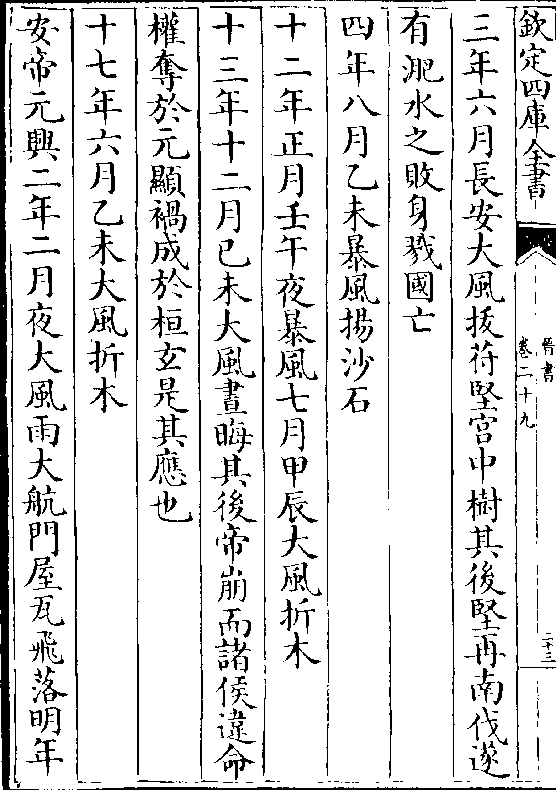 欽定四庫全書
晉書
卷二十九
二十三
三年六月長安大風拔苻堅宫中樹其後堅再南伐遂
有淝水之敗身戮國亡
四年八月乙未暴風揚沙石
十二年正月壬午夜暴風七月甲辰大風折木
十三年十二月己未大風晝晦其後帝崩而諸侯違命
權奪於元顯禍成於桓玄是其應也
十七年六月乙未大風折木
安帝元興二年二月夜大風雨大航門屋瓦飛落明年